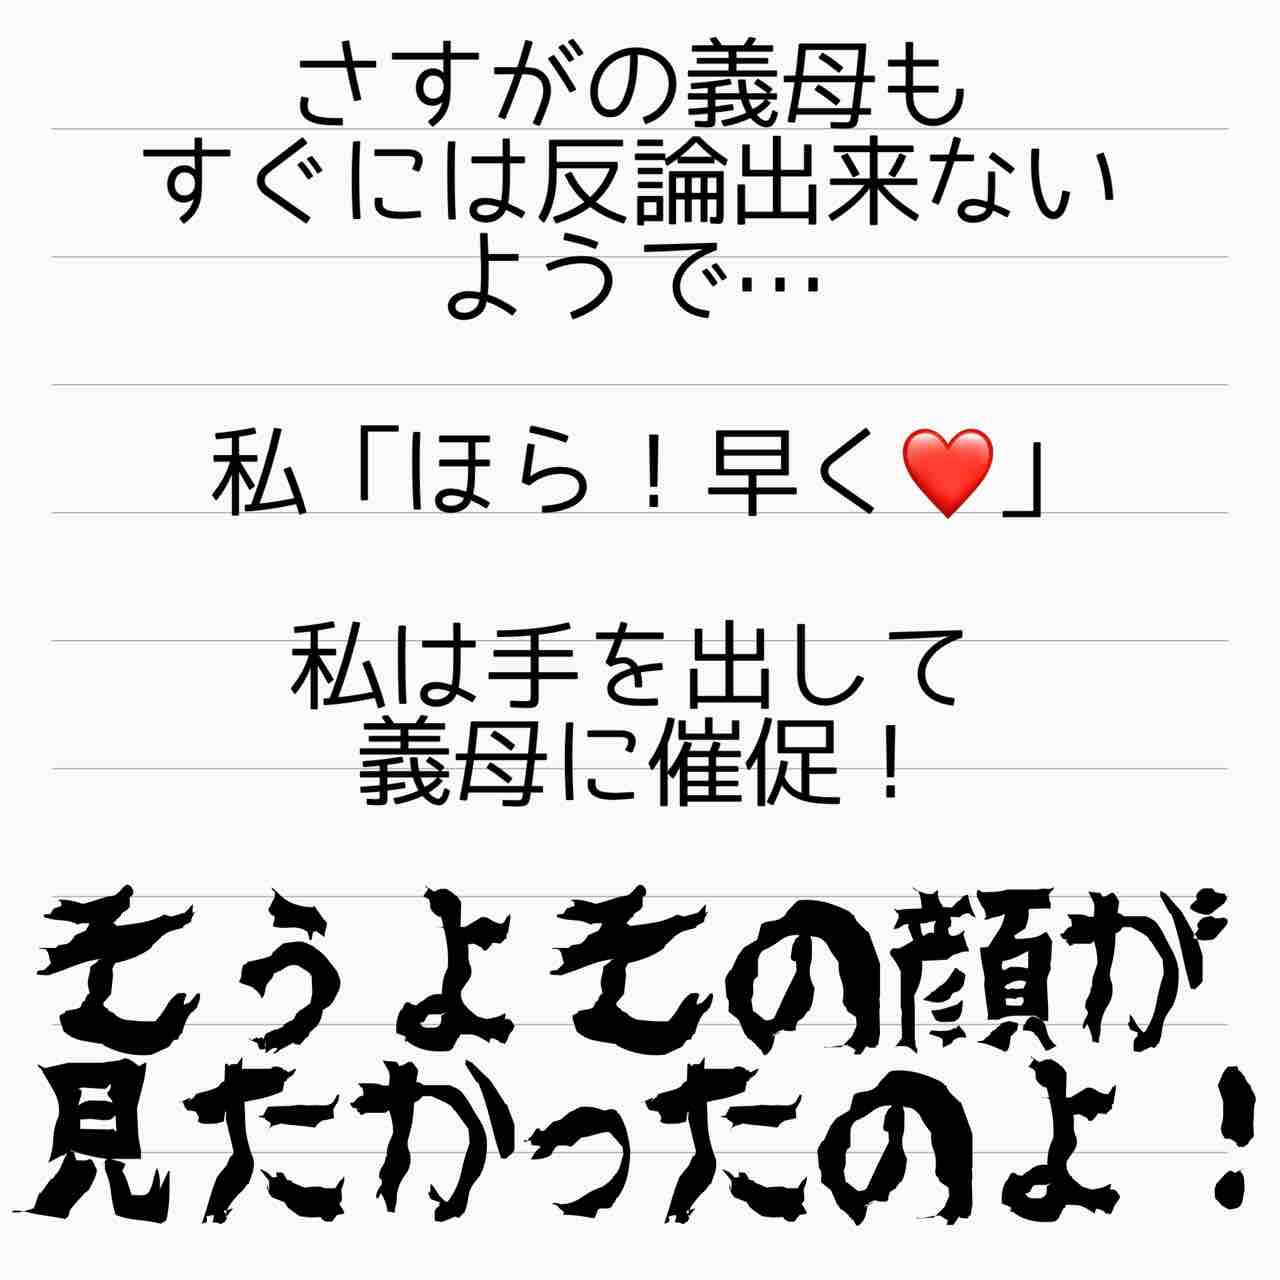 さすがの義母も
すぐには反論出来ない
ようで…
私「ほら！早く❤️」
私は手を出して
義母に催促！
そうよその顔が
見たかったのよ！